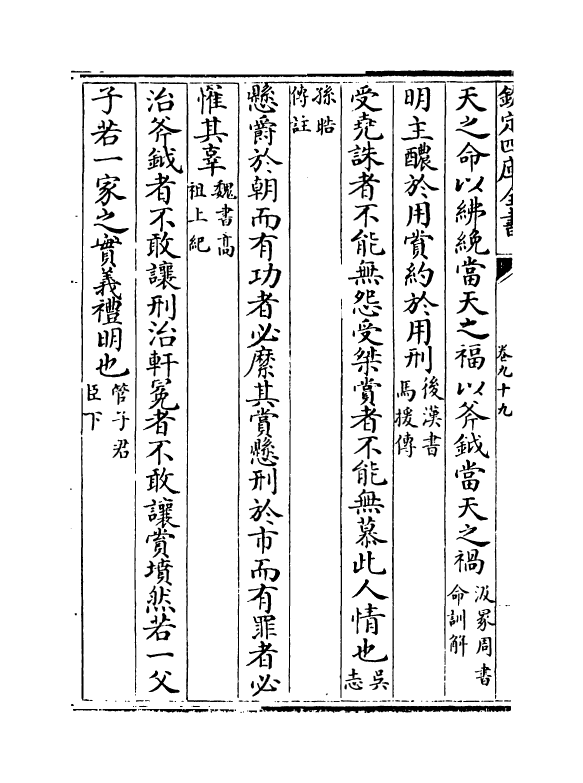 欽定四庫全書
卷九十九
天之命以紼絻當天之福以斧鉞當天之禍汲冡周書命訓解
明主醲於用賞約於用刑後漢書馬援傳
受堯誅者不能無怨受桀賞者不能無慕此人情也吳志
孫晧傳註
懸爵於朝而有功者必縻其賞懸刑於市而有罪者必
惟其辜魏書高祖上紀
治斧鉞者不敢讓刑治軒冕者不敢讓賞墳然若一父
子若一家之實義禮明也管子君臣下